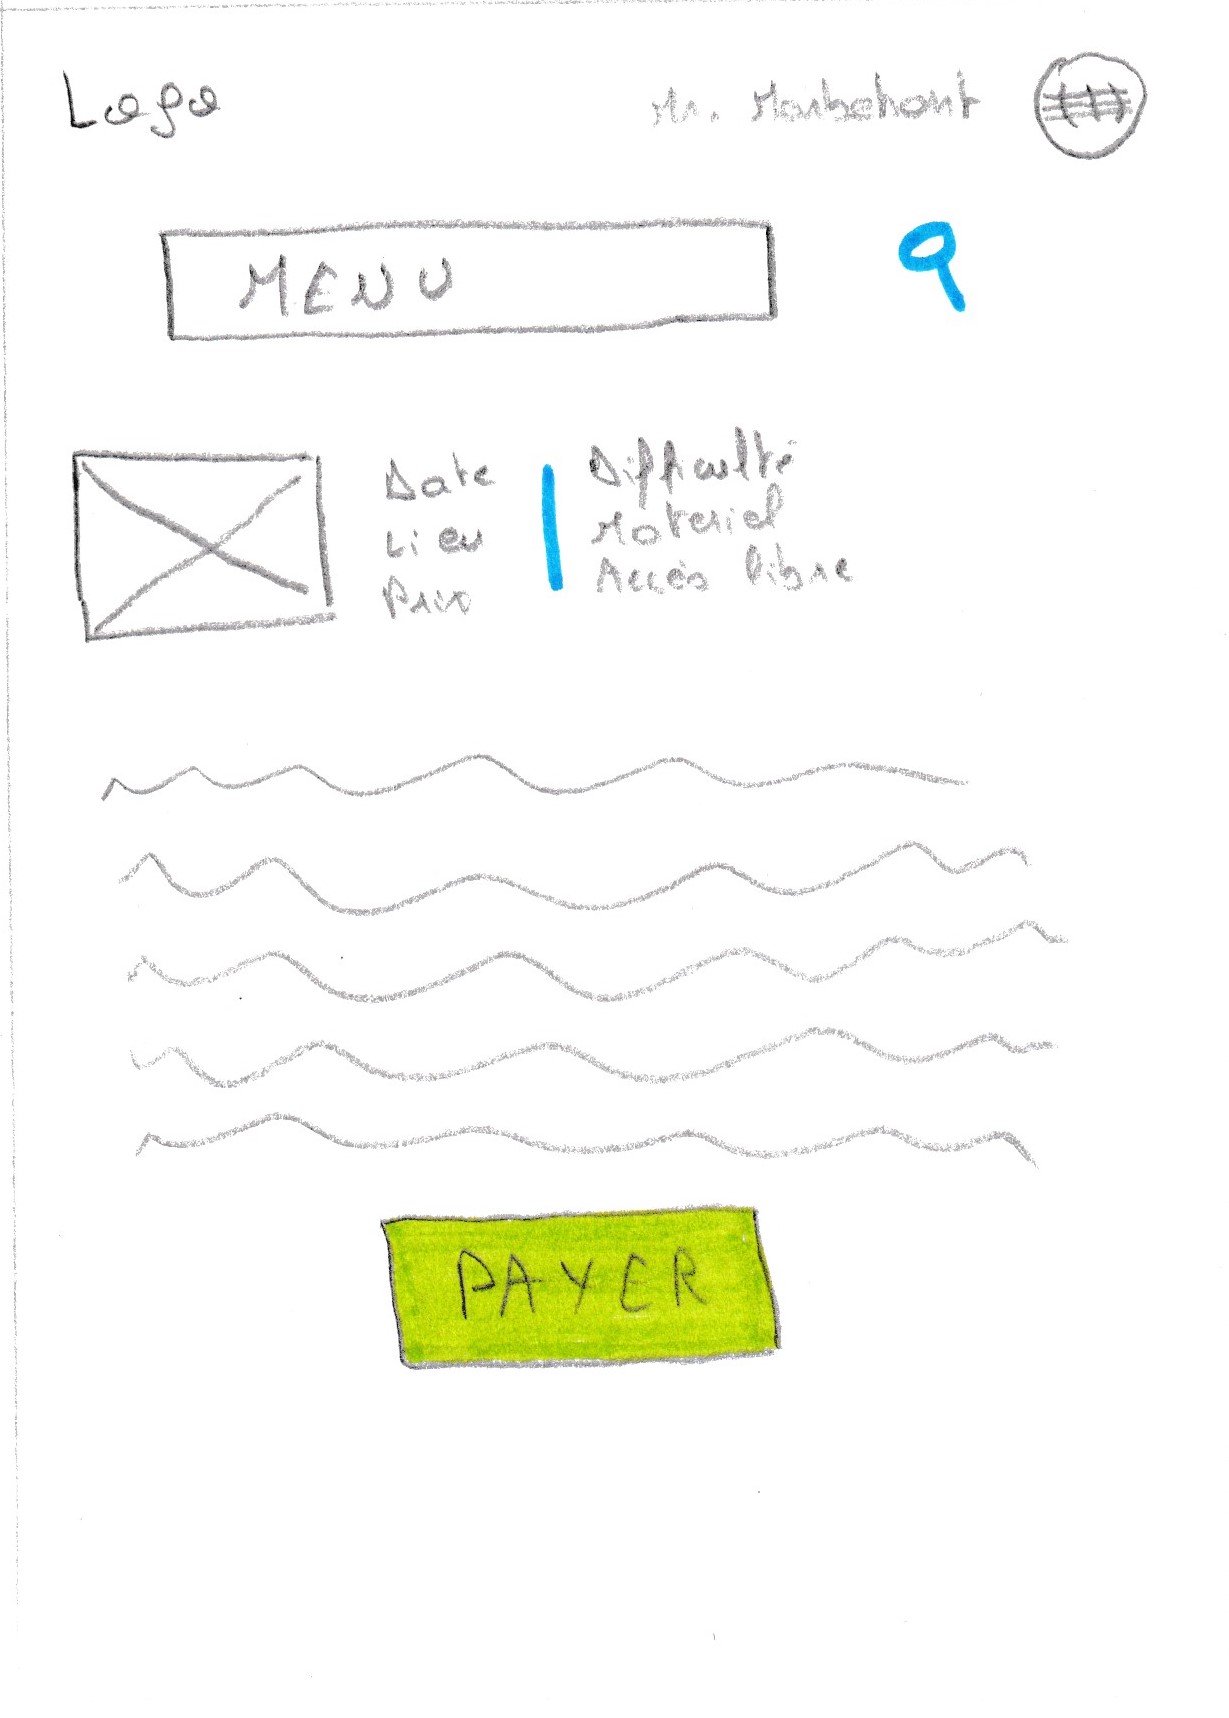 Logo
Mr. Marbehant
MENU
Date
Lieu
Prix
Difficulté
Materiel
Accès libre
PAYER